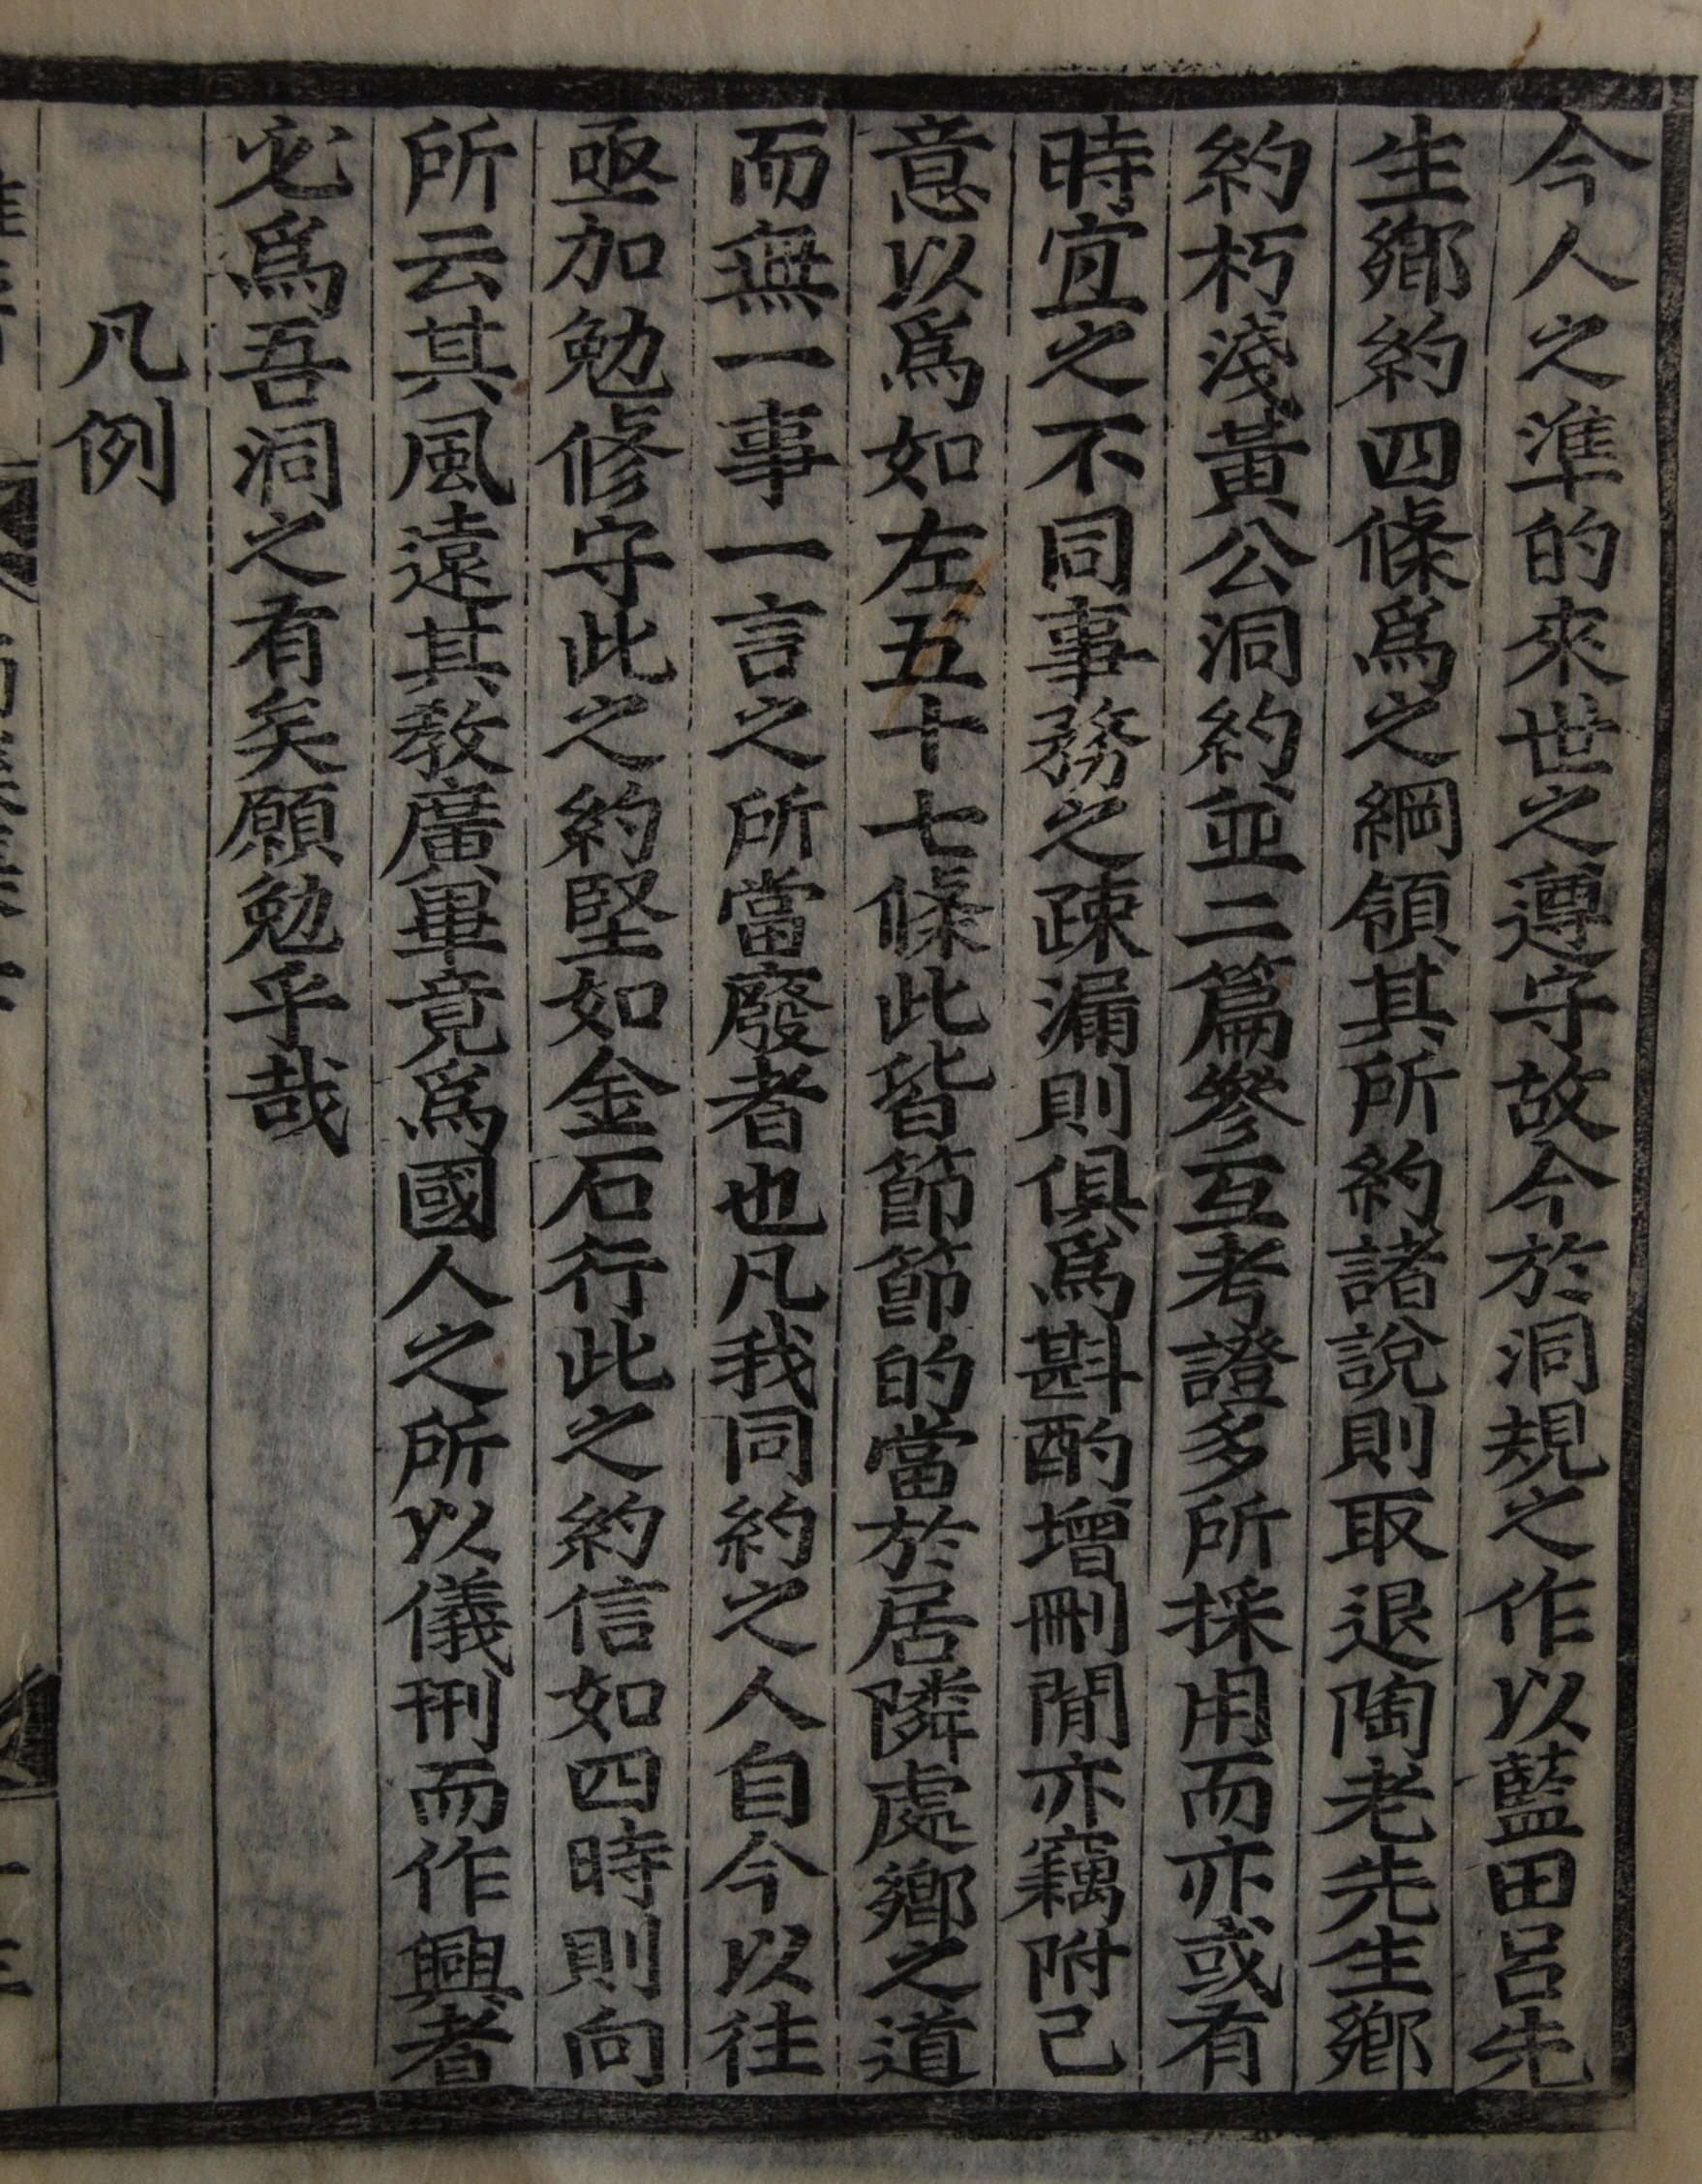 今人之準的來世之遵守故今於洞規之作以藍田呂先
生鄉約四條爲之綱領其所約諸說則取退陶老先生鄉
約朽淺黃公洞約並二篇參互考證多所採用而亦或有
時宜之不同事務之疎漏則俱爲斟酌增刪間亦竊附己
意以爲如左五十七條此皆節節的當於居隣處鄉之道
而無一事一言之所當廢者也凡我同約之人自今以往
亟加勉修守此之約堅如金石行此之約信如四時則向
所云其風遠其教廣畢竟爲國人之所以儀刑而作興者
必爲吾洞之有矣願勉乎哉
凡例